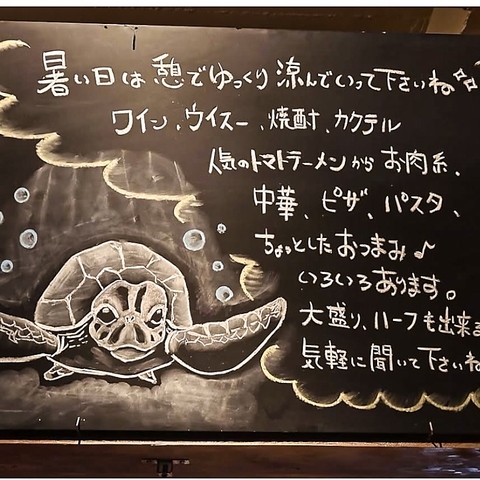 暑い日は憩でゆっくり涼んでいって下さいね☆☆
ワイン、ウイスー、焼酎、カクテル
人気のトマトラーメンからお肉系、
中華、ピザ、パスタ、
ちょっとしたおつまみ♪
いろいろあります。
大盛り、ハーフも出来ま
気軽に聞いて下さいね